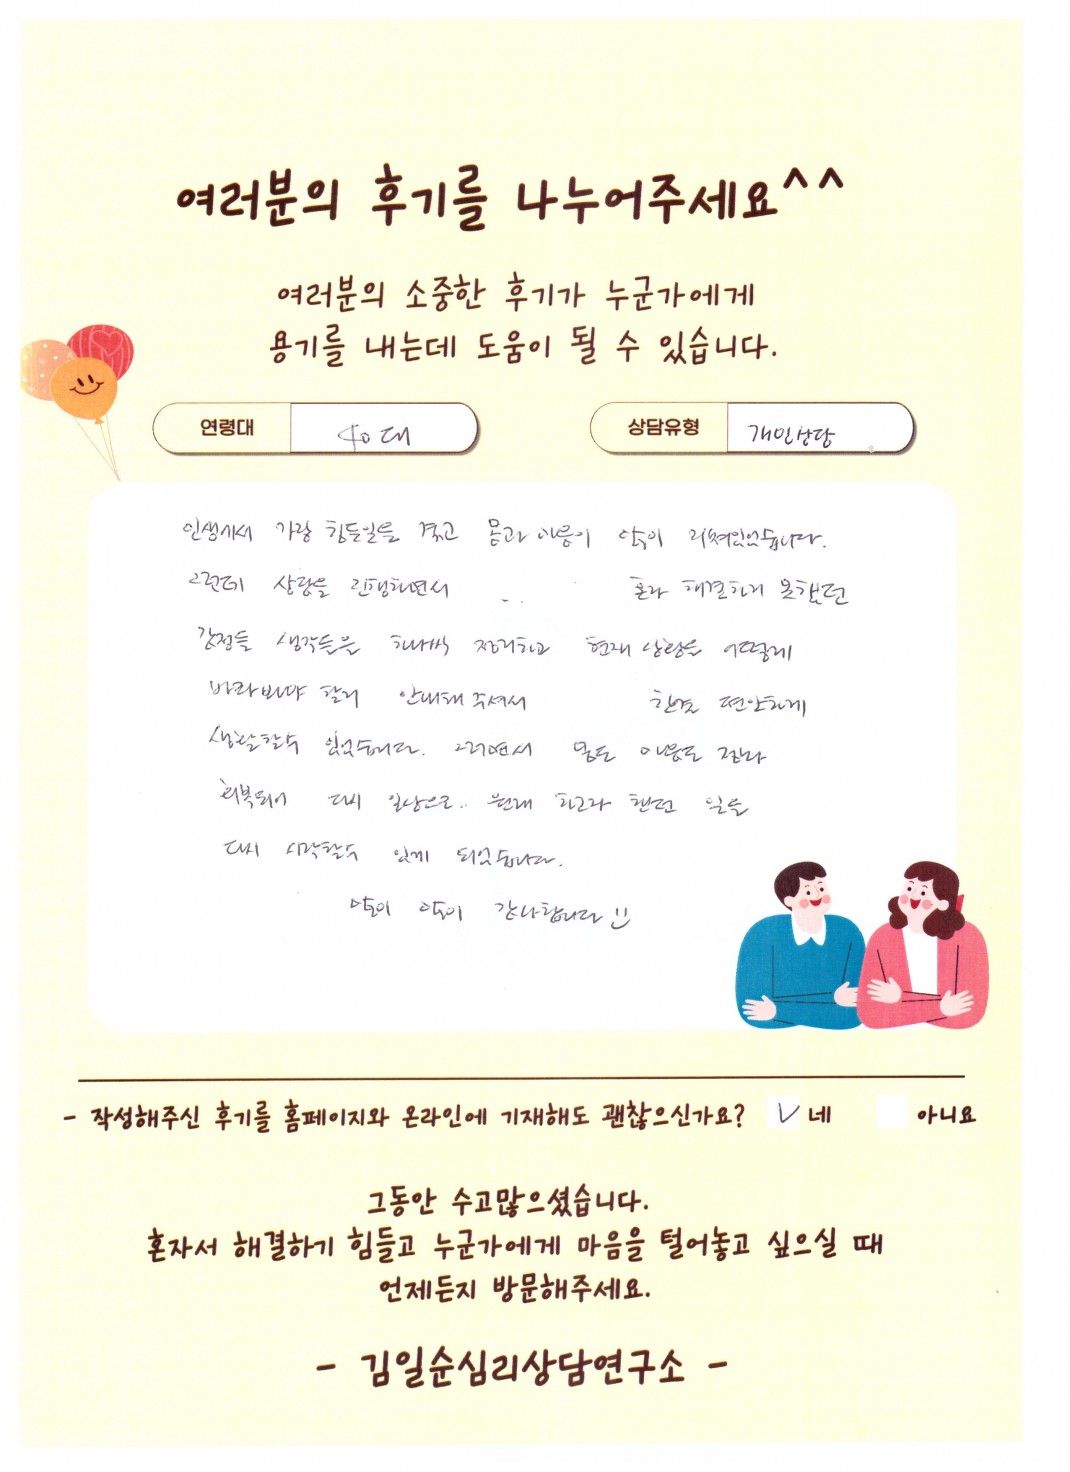 여러분의 후기를 나누어주세요^^
여러분의 소중한 후기가 누군가에게
용기를 내는데 도움이 될 수 있습니다.
연령대 40대
상담유형 개인상담
인생에서 가장 힘든일을 겪고 몸과 마음이 많이 지쳐있었습니다.
그런데 상담을 진행하면서 혼자 해결하지 못했던
감정들 생각들을 하나씩 정리하고 현재 상황을 어떻게
바라봐야 할지 안내해 주셔서 한결 편안하게
생활할수 있었습니다. 그러면서 몸도 마음도 점차
회복되어 다시 일상으로.. 원래 하고자 했던 일을
다시 시작할수 있게 되었습니다.
많이 많이 감사합니다
- 작성해주신 후기를 홈페이지와 온라인에 기재해도 괜찮으신가요? V 네 아니요
그동안 수고많으셨습니다.
혼자서 해결하기 힘들고 누군가에게 마음을 털어놓고 싶으실 때
언제든지 방문해주세요.
- 김일순심리상담연구소 -